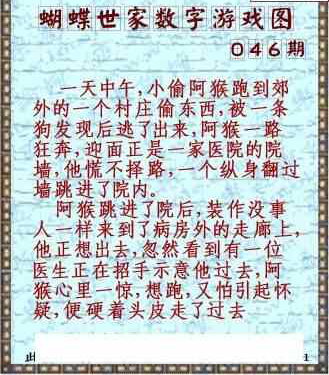 蝴蝶世家数字游戏图
046期
一天中午,小偷阿猴跑到郊
外的一个村庄偷东西,被一条
狗发现后逃了出来,阿猴一路
狂奔,迎面正是一家医院的院
墙,他慌不择路,一个纵身翻过
墙跳进了院内。
阿猴跳进了院后,装作没事
人一样来到了病房外的走廊上,
他正想出去,忽然看到有一位
医生正在招手示意他过去,阿
猴心里一惊,想跑,又怕引起怀
疑,便硬着头皮走了过去